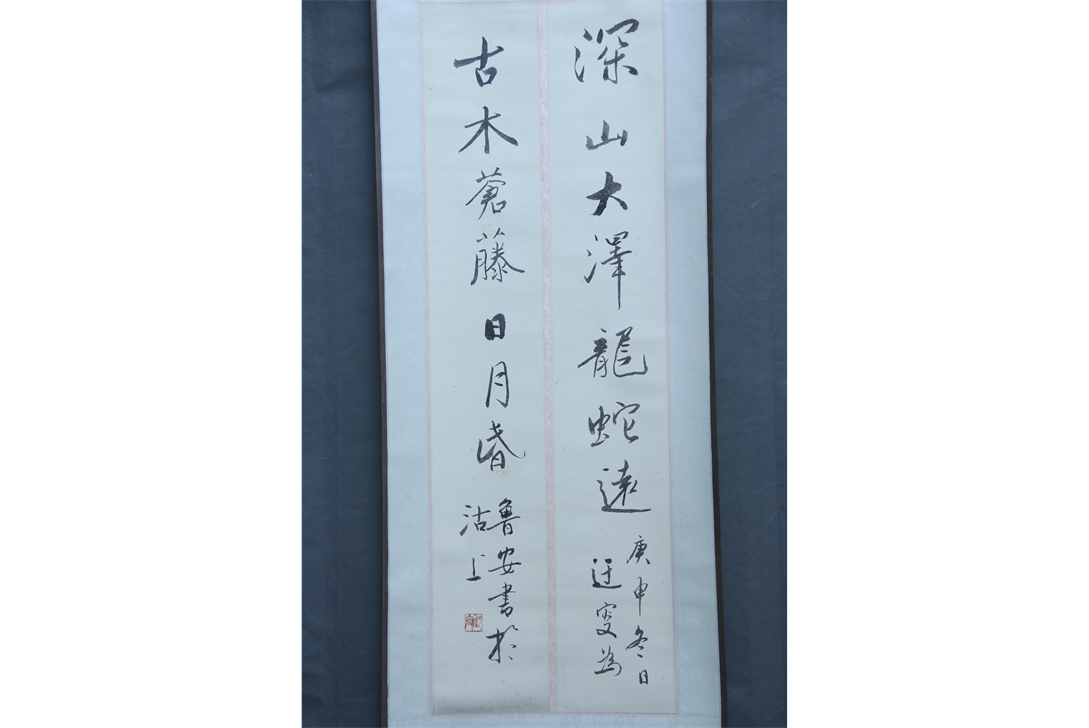 深山大澤龍蛇遠
庚申冬日
迂叟為
古木蒼藤日月昏
魯安書於
沽上